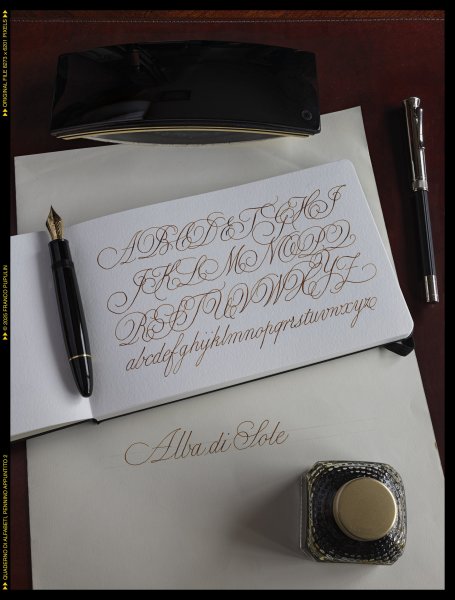 ABCDEFGHI
JKLMNOPQ
RSTUVWXYZ
abcdefghijklmnopqrstuvwxyz
Alba di Sole
QUADERNO DI ALFABETI, PENNINO APPUNTITO 2
© 2025 FRANCO PUPULIN
ORIGINAL FILE 8275 x 6201 PIXELS